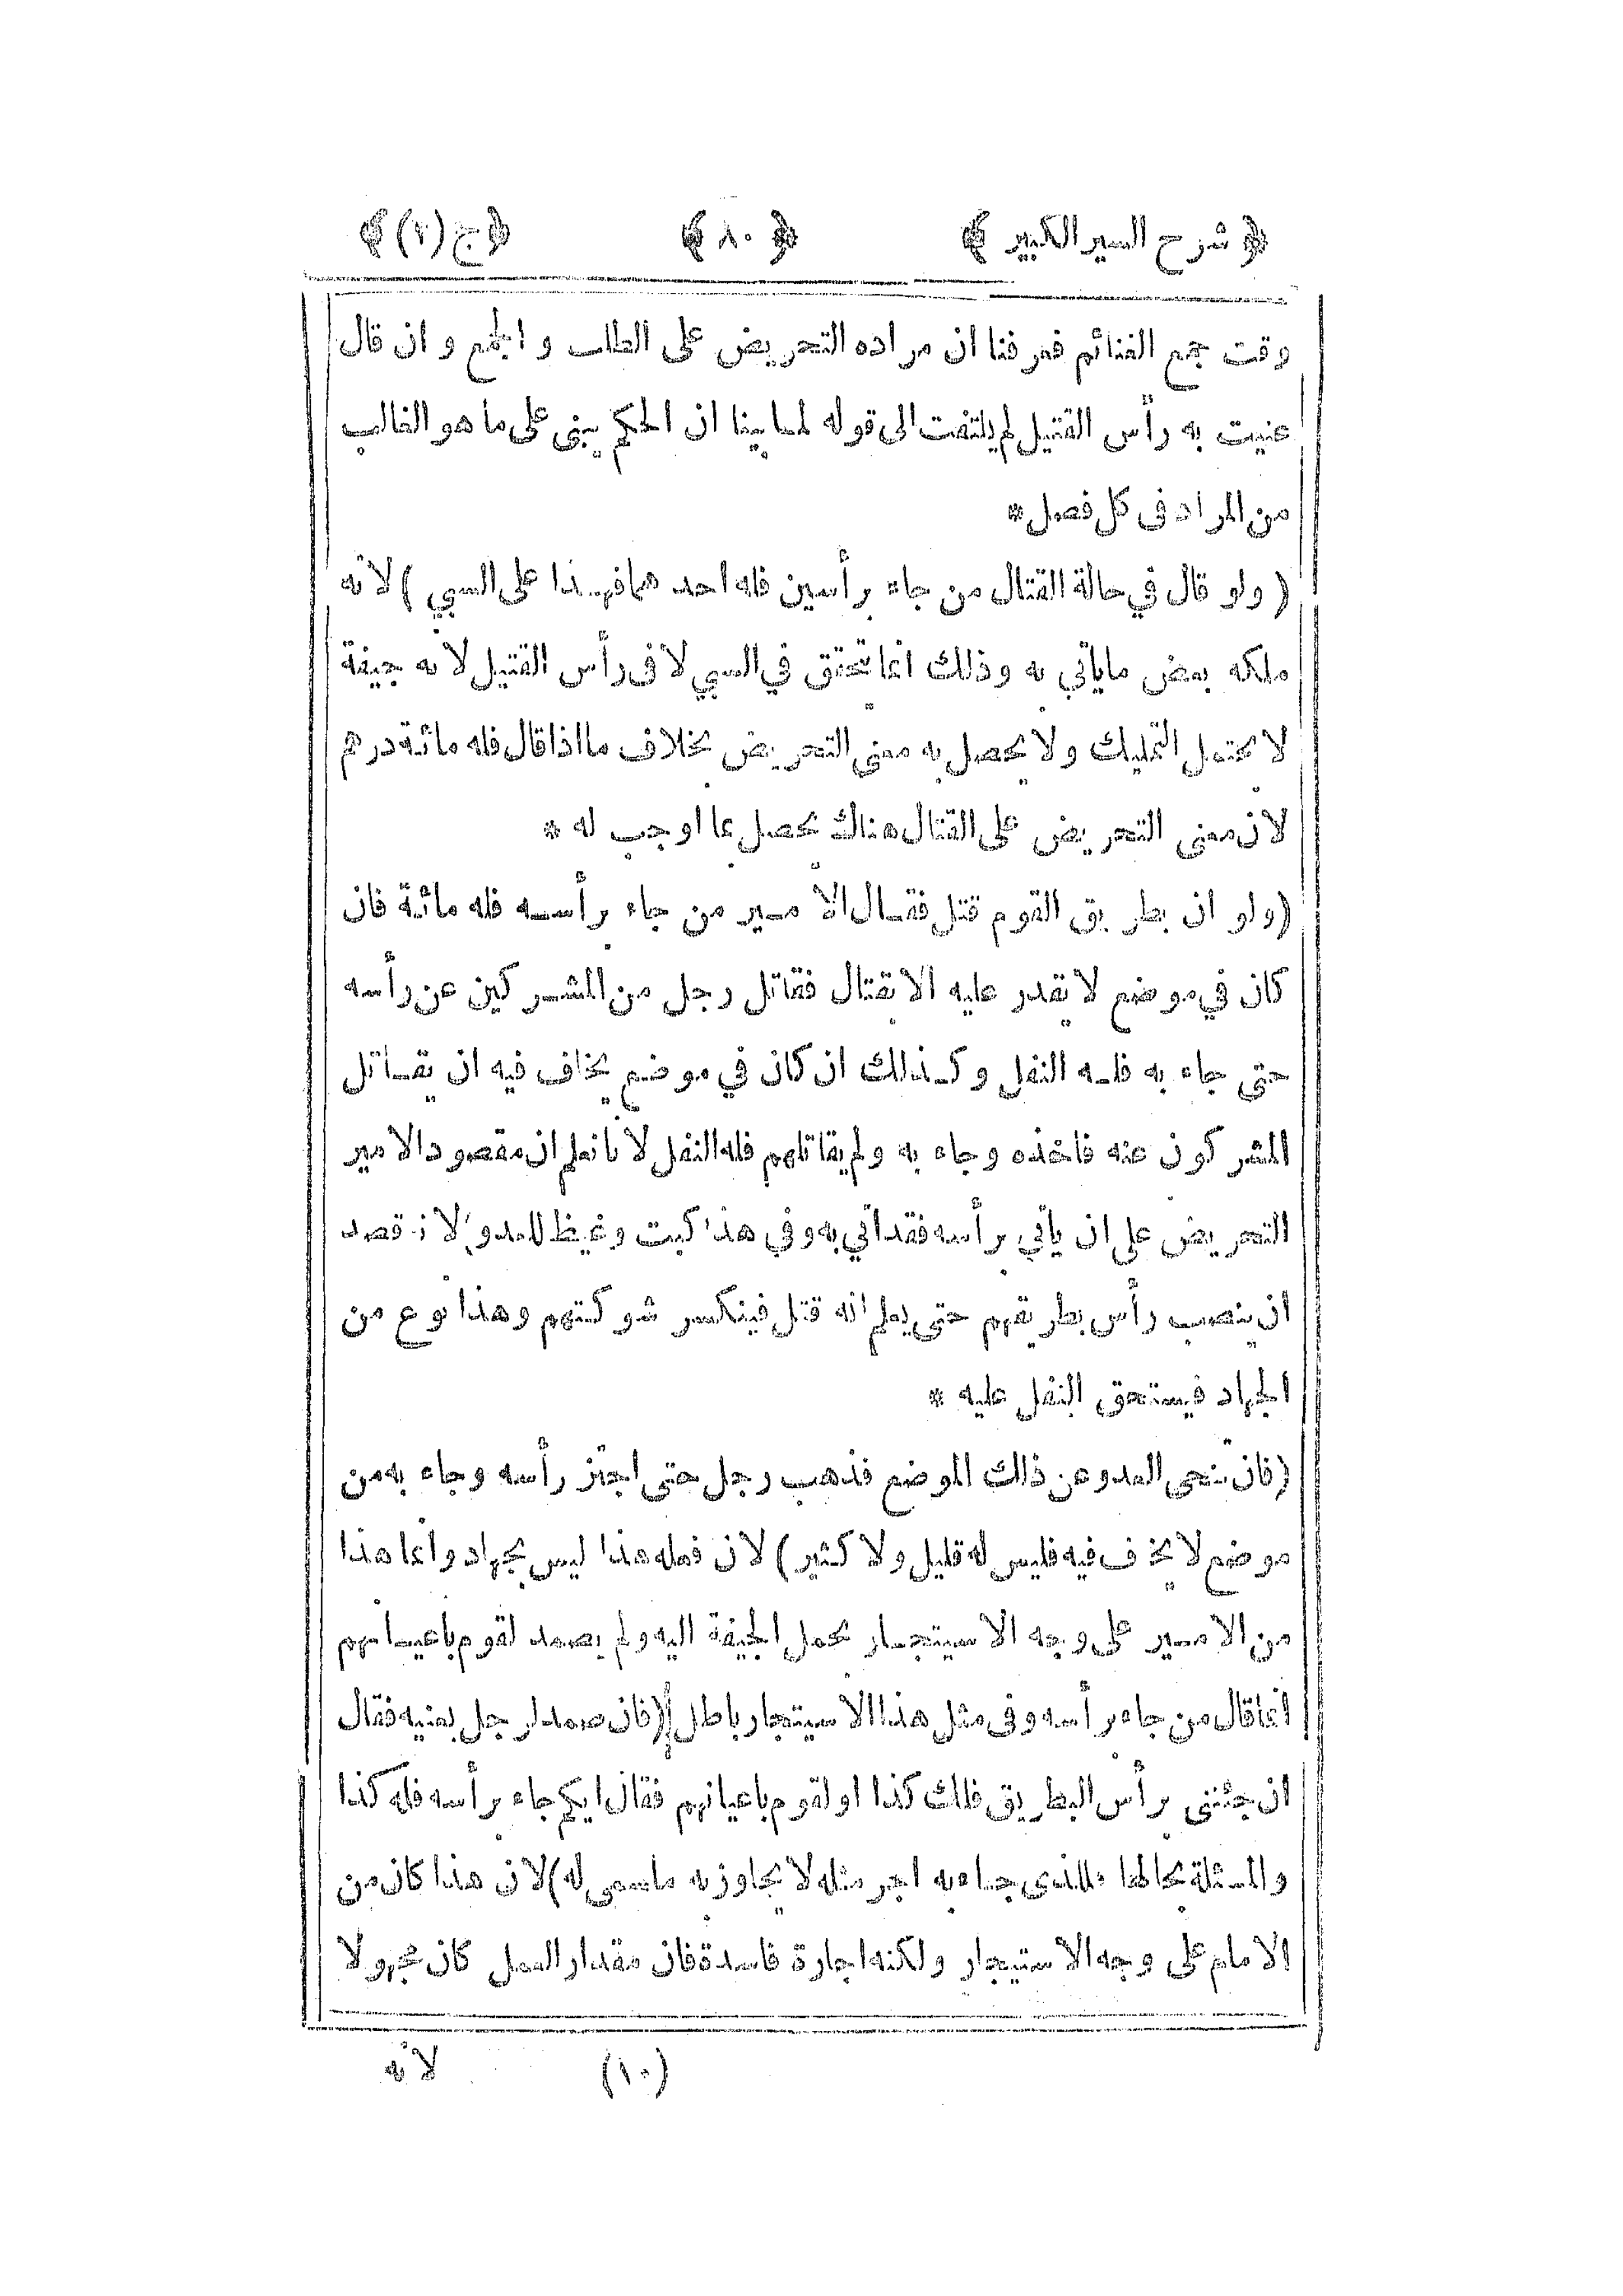 ﴿ شرح السير الكبير ﴾ ﴿ ٨٠ ﴾ ﴿ ج (٢) ﴾
وقت جمع الغنائم فعرفنا ان مراده التحريض على الطلب والجمع وان قال
عنيت به رأس القتيل لم يلتفت الى قوله لما بينا ان الحكم يبنى على ما هو الغالب
من المراد فى كل فصل *
( ولو قال في حالة القتال من جاء برأسين فله احدهما فهذا على السبي ) لانه
ملكه بعض ما يأتي به وذلك انما يتحقق في السبي لا فى رأس القتيل لانه جيفة
لا يحتمل التمليك ولا يحصل به معنى التحريض بخلاف ما اذا قال فله مائة درهم
لان معنى التحريض على القتال هناك يحصل بما اوجب له *
(ولو ان بطريق القوم قتل فقال الأمير من جاء برأسه فله مائة فان
كان في موضع لا يقدر عليه الا بقتال فقاتل رجل من المشركين عن رأسه
حتى جاء به فله النفل وكذلك ان كان في موضع يخاف فيه ان يقاتل
المشركون عنه فاخذه وجاء به ولم يقاتلهم فله النفل لانا نعلم ان مقصود الامير
التحريض على ان يأتي برأسه فقد اتي به وفي هذا كبت وغيظ للعدو لانه قصد
ان ينصب رأس بطريقهم حتى يعلم انه قتل فينكسر شوكتهم وهذا نوع من
الجهاد فيستحق النفل عليه *
(فان تنحى العدو عن ذلك الموضع فذهب رجل حتى اجتز رأسه وجاء به من
موضع لا يخاف فيه فليس له قليل ولا كثير) لان فعله هذا ليس بجهاد وانما هذا
من الامير على وجه الاستيجار بحمل الجيفة اليه ولم يصمد لقوم باعيانهم
انما قال من جاء برأسه وفى مثل هذا الاستيجار باطل (فان صمد لرجل بعينه فقال
ان جئتنى برأس البطريق فلك كذا او لقوم باعيانهم فقال ايكم جاء برأسه فله كذا
والمسئلة بحالها فللذى جاء به اجر مثله لا يجاوز به ما سمى له) لان هذا كان من
الامام على وجه الاستيجار ولكنه اجارة فاسدة فان مقدار العمل كان مجهولا
(١٠) لانه